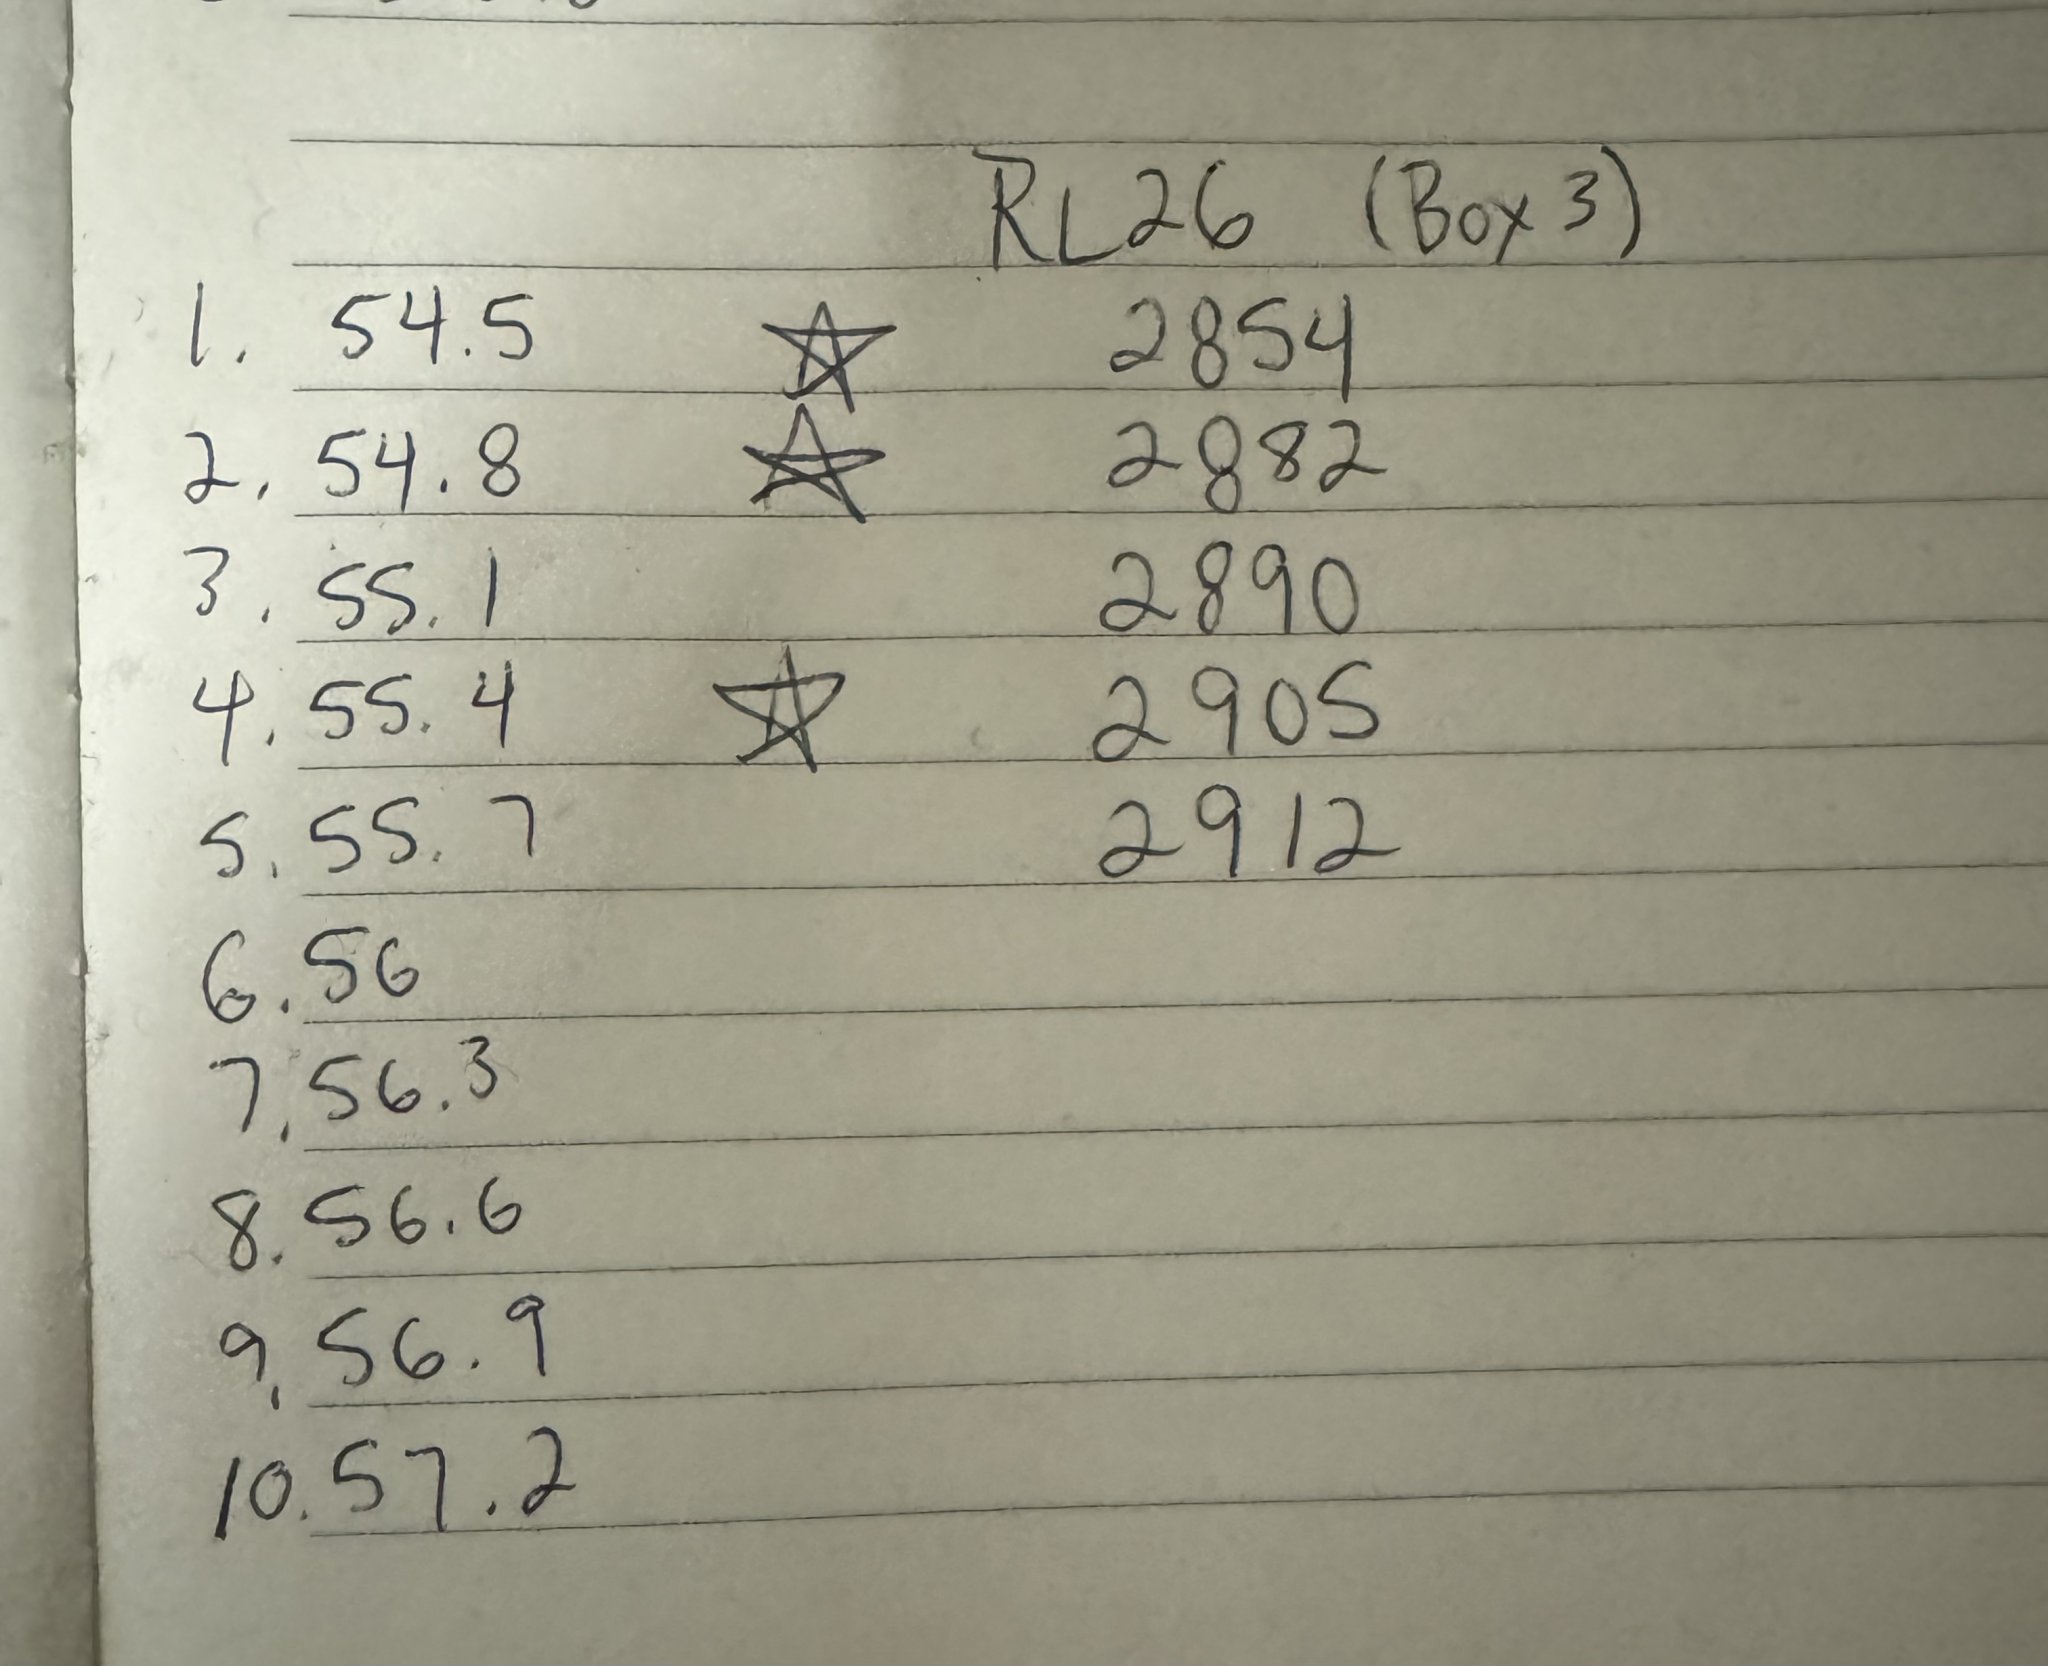 RL26 (Box 3)
1. 54.5 ☆ 2854
2. 54.8 ☆ 2882
3. 55.1 2890
4. 55.4 ☆ 2905
5. 55.7 2912
6. 56
7. 56.3
8. 56.6
9. 56.9
10. 57.2